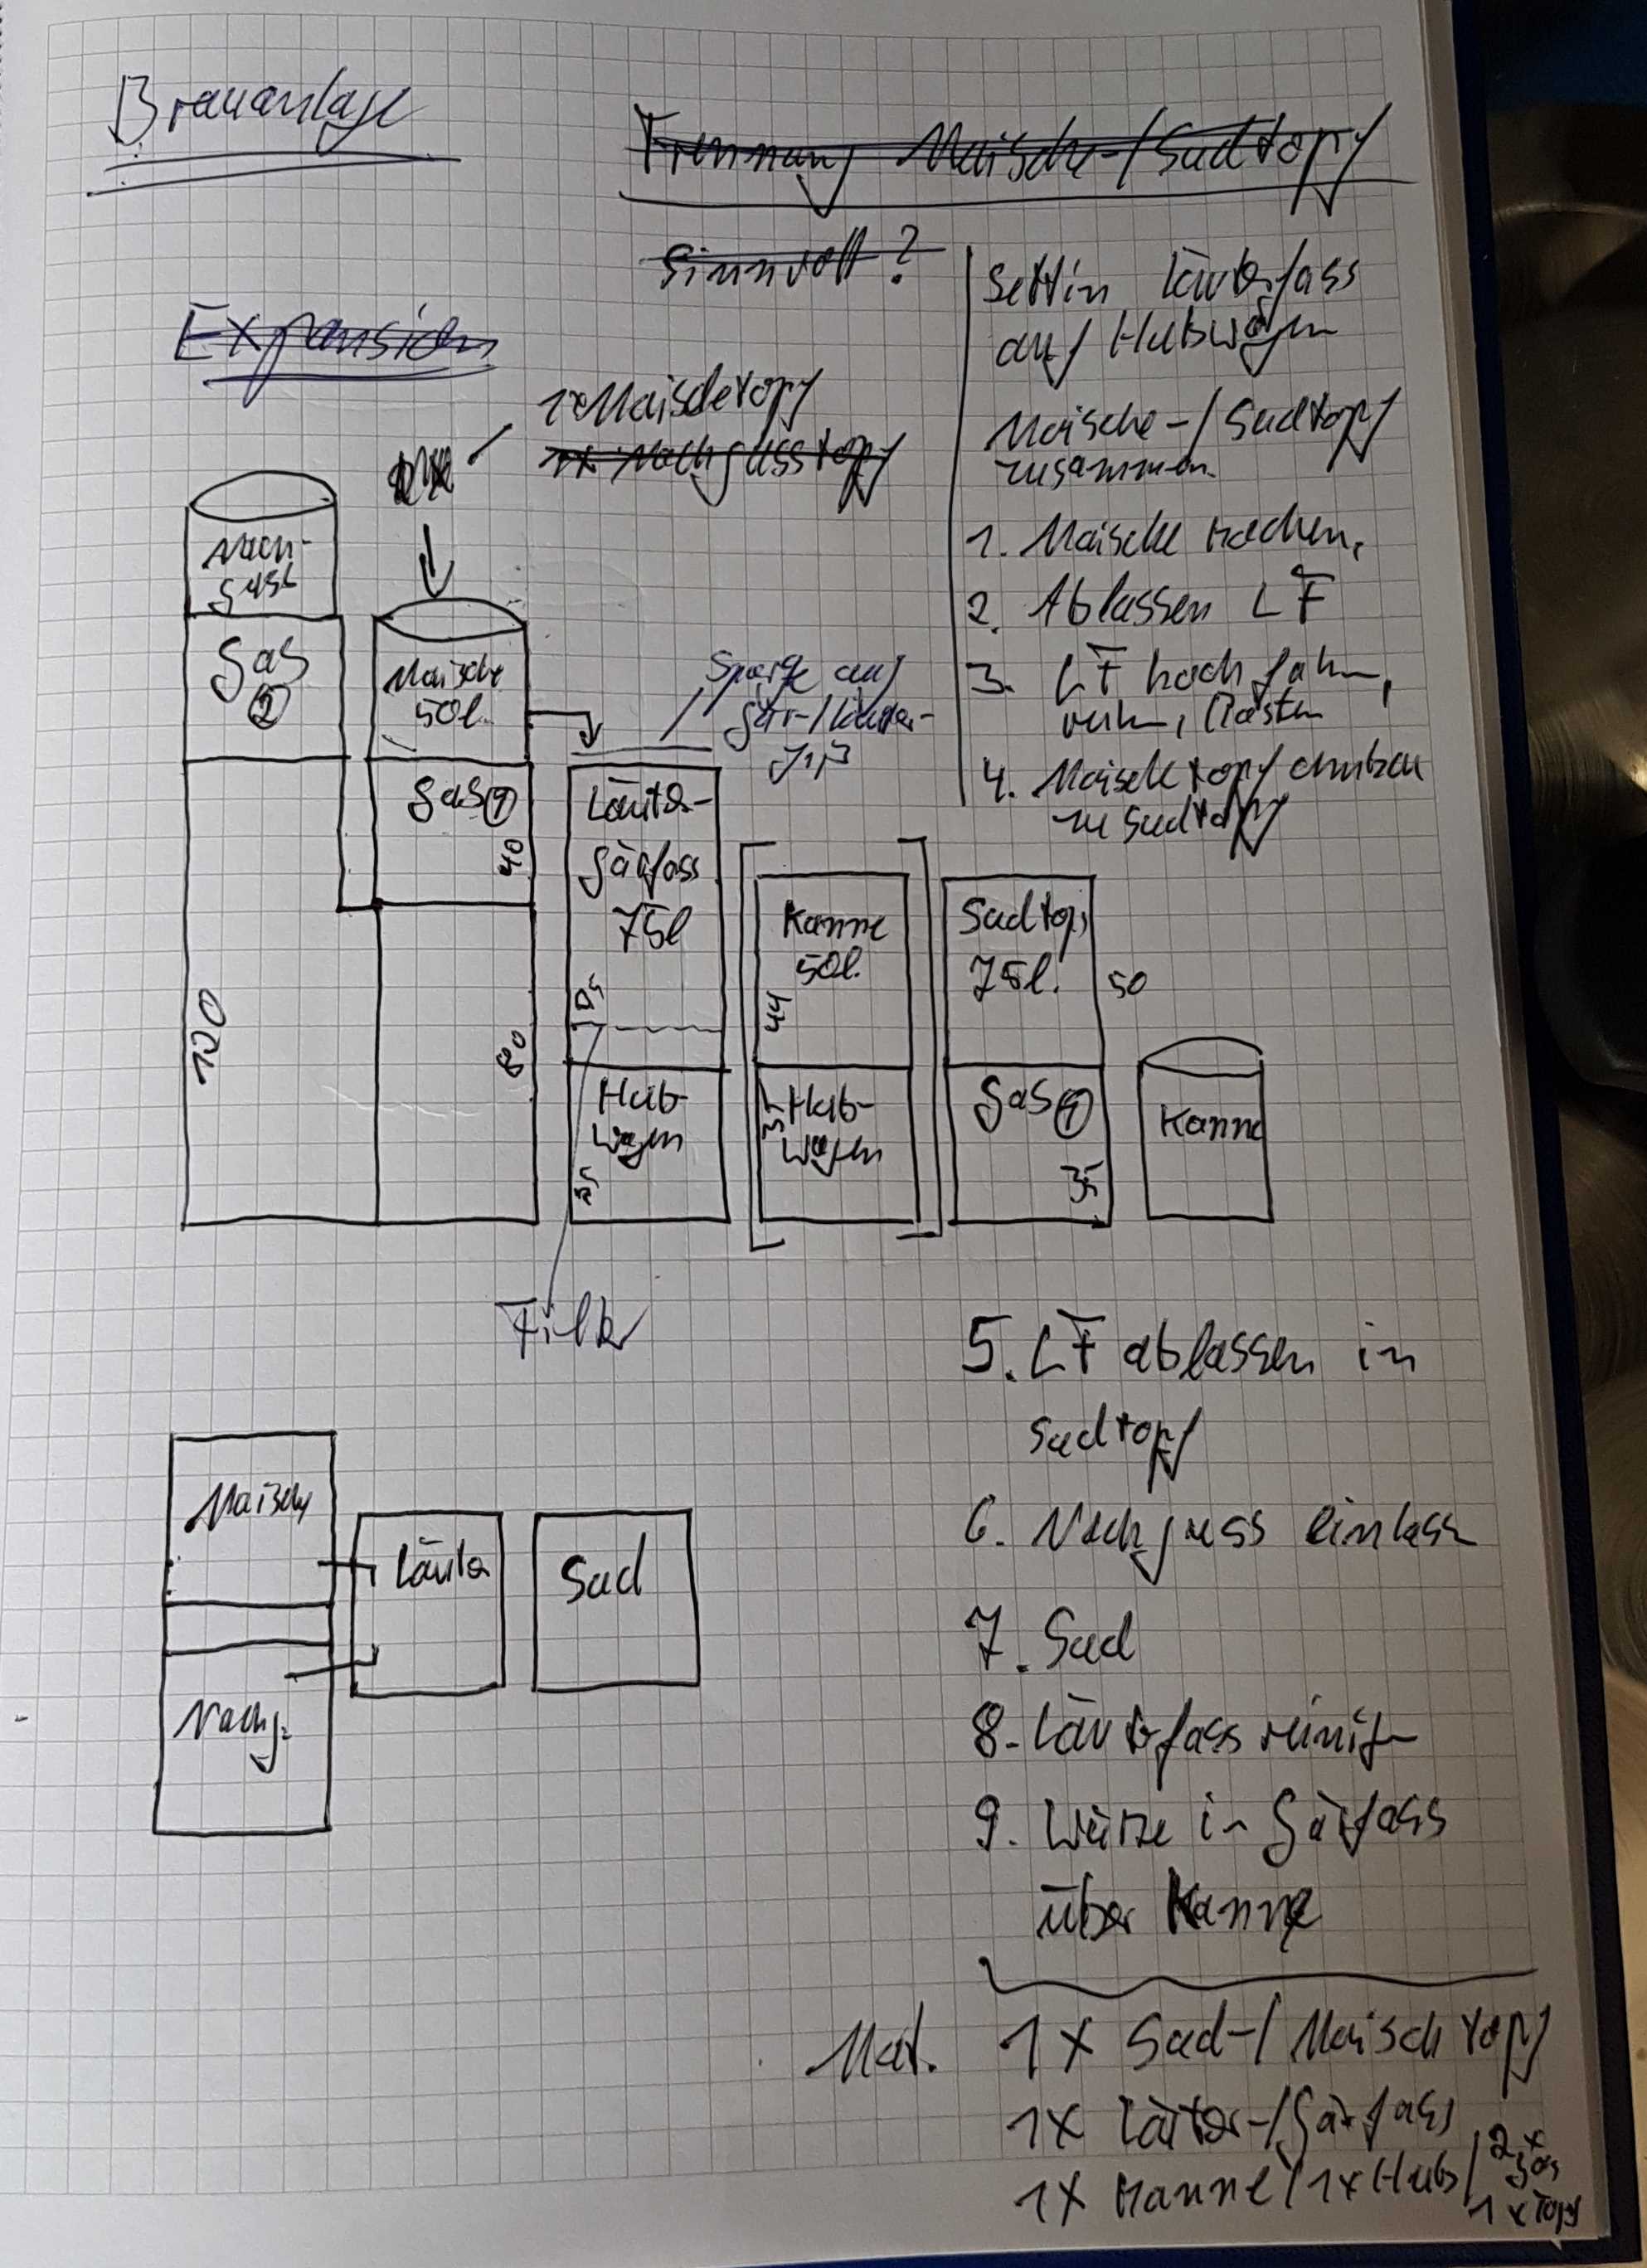 Brauanlage
Trennung Maische-/Sudtopf
Sinnvoll?
Expansion
1x Maischetopf
1x Nachgusstopf
Läuterfass
auf Hubwagen
Maische-/Sudtopf
zusammen
1. Maische kochen,
2. Ablassen LF
3. LF hochfahren,
Rasten
4. Maischetopf umbauen
zu Sudtopf
Nach-
guss
Gas
2
Maische
50l.
Gas 1
40
120
80
Sparge auf
Gär-/Läuter-
Läuter-
Gärfass
75l
Hub-
wagen
35
Filter
Kanne
50l.
44
Hub-
wagen
35
Sudtopf
75l.
50
Gas 1
35
Kanne
5. LF ablassen in
Sudtopf
6. Nachguss einlassen
7. Sud
8. Läuterfass reinigen
9. Würze in Gärfass
über Kanne
Maische
Läuter
Sud
Nachg.
Mat. 1x Sud-/Maischtopf
1x Läuter-/Gärfass
1x Kanne/1x Hub/2x Gas
1x Topf